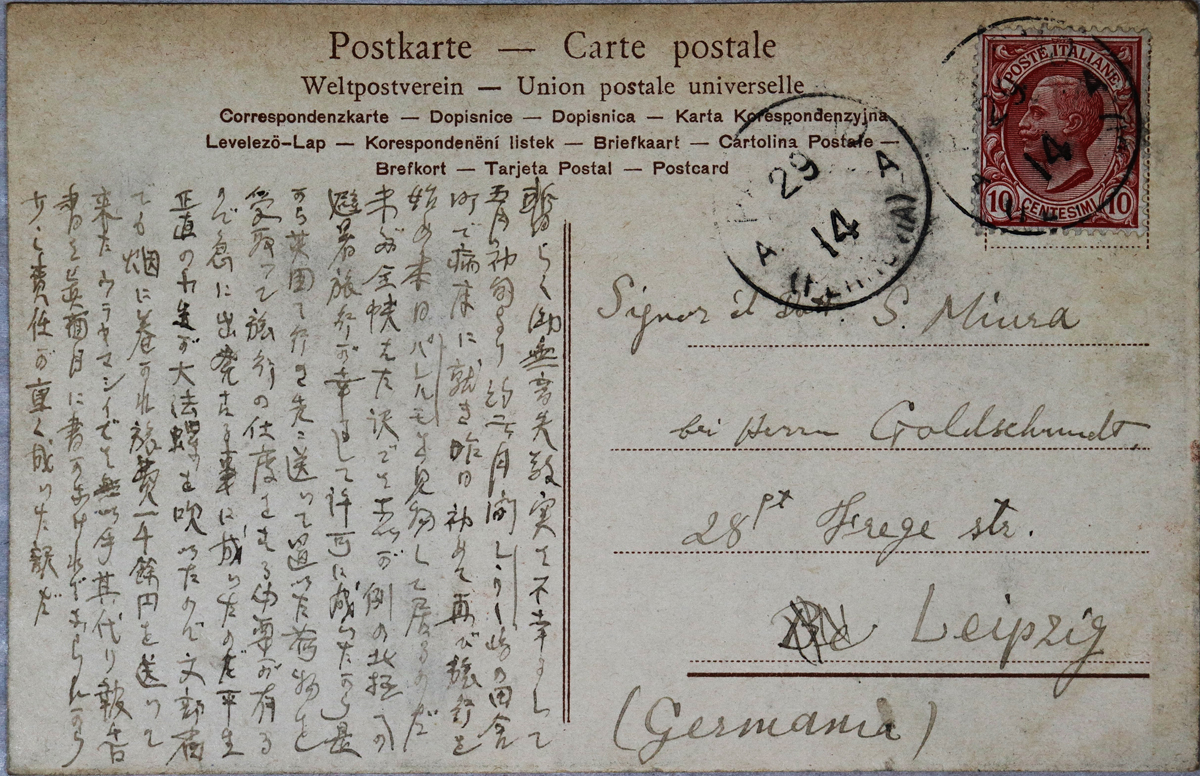 Postkarte — Carte postale
Weltpostverein — Union postale universelle
Correspondenzkarte — Dopisnice — Dopisnica — Karta Korespondenzyjna
Levelező-Lap — Korespondenění listek — Briefkaart — Cartolina Postale —
Brefkort — Tarjeta Postal — Postcard
POSTE ITALIANE
10 CENTESIMI 10
29
14
A
A
14
暫らく御無音失敬実は不幸にして
五月初旬より約二ヶ月間シシリー島の田舎
町で病床に就き昨日初めて再び旅行を
始め本日パレルモを見物して居るのだ
未が全快した訳でも
避暑旅行が幸にして許可に成ったから是
から英国に行き先に送って置いた荷物を
受取って旅行の仕度をする必要が有る
ので急に出発する事に成ったのだ平生
正直の先生が大法螺を吹いたので文部省
でも烟に巻かれ旅費一千余円を送って
来たウラヤマシイでも其代り報告
書を真面目に書かなければならんから
少し責任が重く成った訳だ
Signor il Dot. S. Miura
bei Herrn Goldschmidt,
28 pt Frege str.
Leipzig
(Germania)